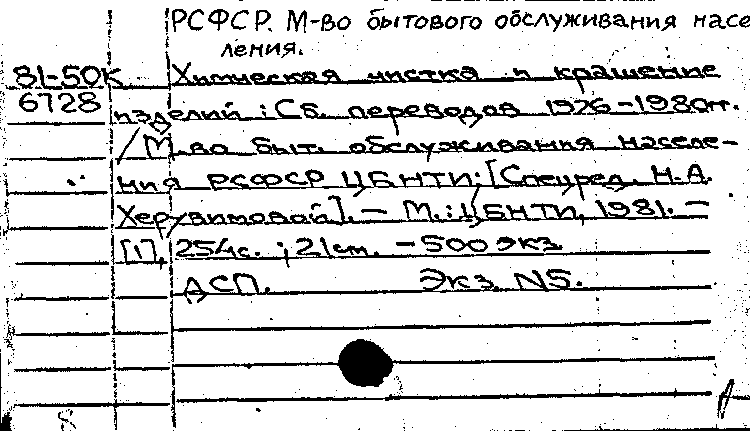 РСФСР. М-во бытового обслуживания насе
ления.
81-50К Химическая чистка и крашение
6728 изделий : Сб. переводов 1976-1980гг.
/ М-во быт. обслуживания населе-
ния РСФСР ЦБНТИ; [Спецред. Н.А.
Херувимовой]. — М. : ЦБНТИ, 1981. —
[1], 254с. ; 21см. — 500 экз
ДСП. Экз. N5.
8